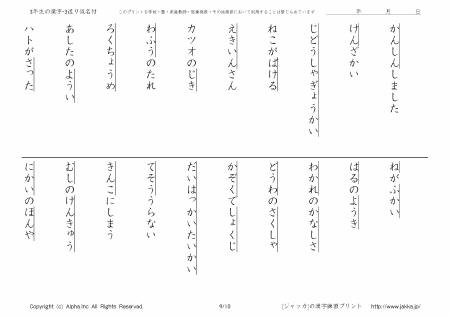 3年生の漢字-3送り仮名付
このプリントを学校・塾・家庭教師・医療施設・その他施設において利用することは禁じられています
年　月　日
かんしんしました
けんざかい
じどうしゃぎょうかい
ねこがばける
えきいんさん
カツオのじき
わふうのたれ
ろくちょうめ
あしたのようい
ハトがさった
ねがふかい
はるのようき
わかれのかなしさ
どうわのさくしゃ
かぞくでしょくじ
だいはっかいたいかい
てそううらない
きんこにしまう
むしのけんきゅう
にかいのほんや
Copyright (c) Alpha.Inc All Rights Reserved.
9/10
[ジャッカ]の漢字練習プリント　http://www.jakka.jp/